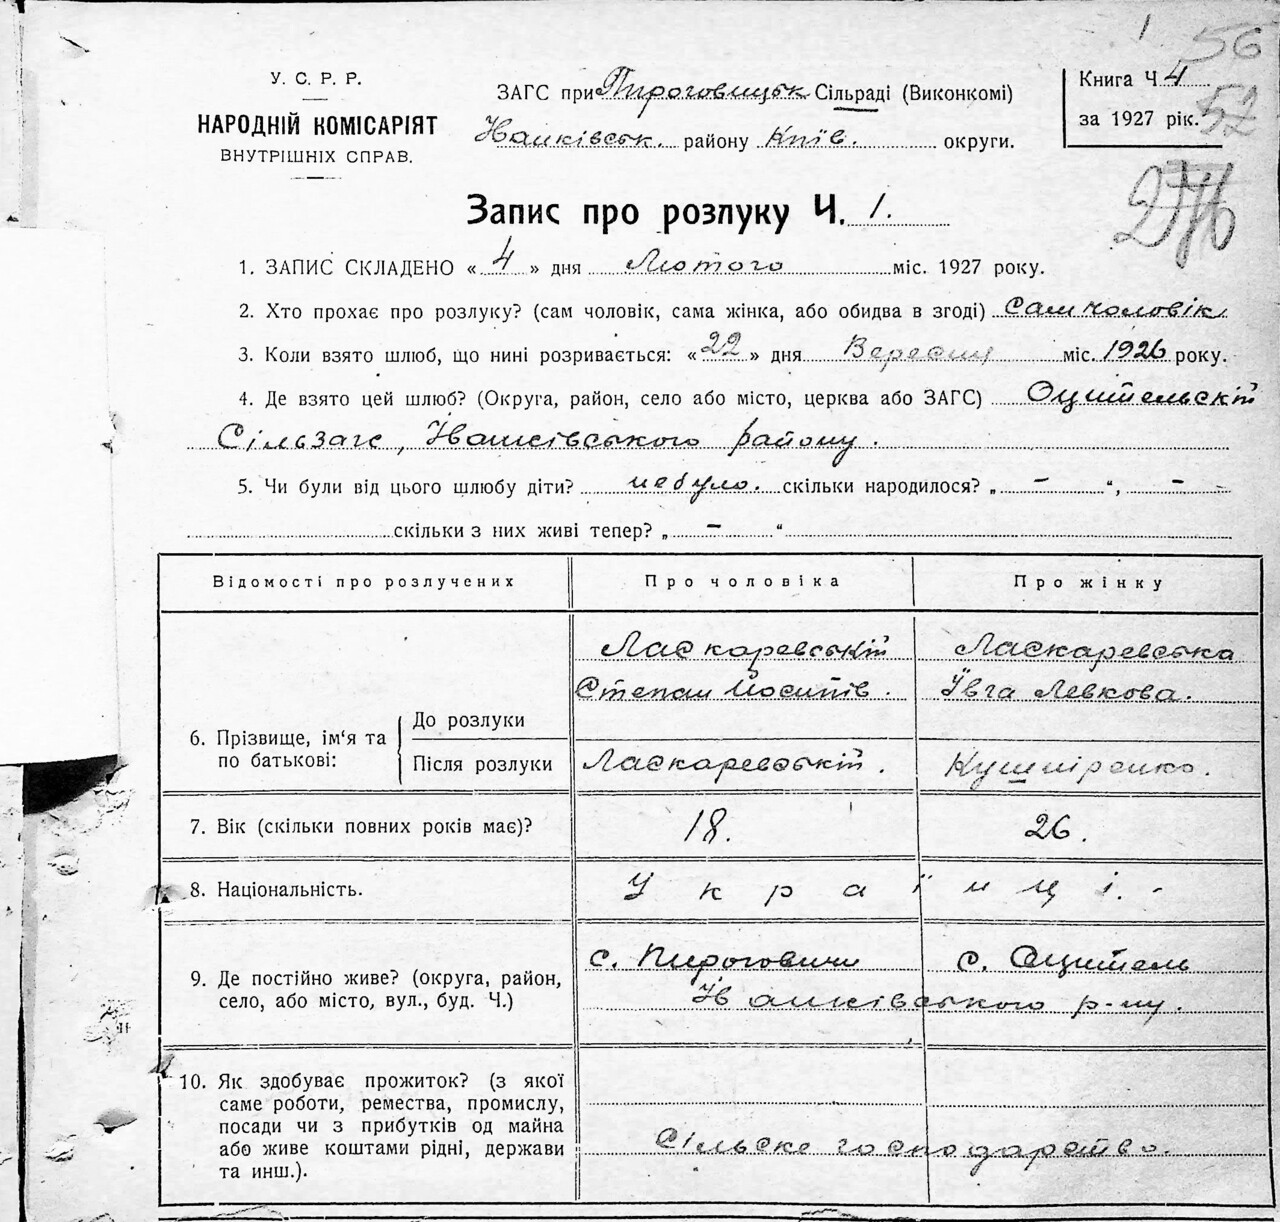 1 56
У. С. Р. Р.
НАРОДНІЙ КОМІСАРІЯТ
ВНУТРІШНІХ СПРАВ.
ЗАГС при Пироговицьк Сільраді (Виконкомі)
районy Київ. округи.
Книга Ч 4
за 1927 рік. 52
Запис про розлуку Ч. 1.
1. ЗАПИС СКЛАДЕНО « 4 » дня Лютого міс. 1927 року.
2. Хто прохає про розлуку? (сам чоловік, сама жінка, або обидва в згоді) сам чоловік
3. Коли взято шлюб, що нині розривається: « 22 » дня Вересня міс. 1926 року.
4. Де взято цей шлюб? (Округа, район, село або місто, церква або ЗАГС) Оцительскій
Сільзагс, Іванківського району.
5. Чи були від цього шлюбу діти? небуло. скільки народилося? „ - “, - -
скільки з них живі тепер? „ - “
Відомості про розлучених Про чоловіка Про жінку
6. Прізвище, ім‘я та по батькові:
До розлуки
Ласкаревській
Степан Йосипів.
Ласкаревська
Ївга Левкова.
Після розлуки Ласкаревській. Кушніренко.
7. Вік (скільки повних років має)? 18. 26.
8. Національність. Українці.
9. Де постійно живе? (округа, район,
село, або місто, вул., буд. Ч.)
с. Пироговичи с. Оцитель
Іванківського р-ну.
10. Як здобуває прожиток? (з якої
саме роботи, ремества, промислу,
посади чи з прибутків од майна
або живе коштами рідні, держави
та инш.).
Сільске господарство.